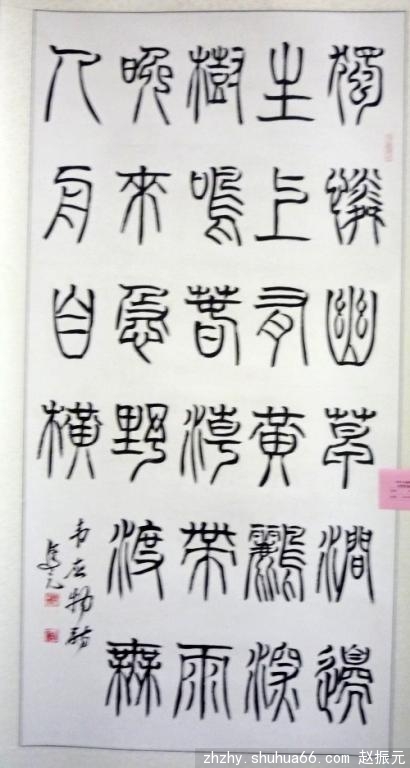 獨憐幽草澗邊
生上有黃鸝深
樹鳴春潮帶雨
晚來急野渡無
人舟自橫
韦应物詩
振元
zhzhy.shuhua66.com 赵振元